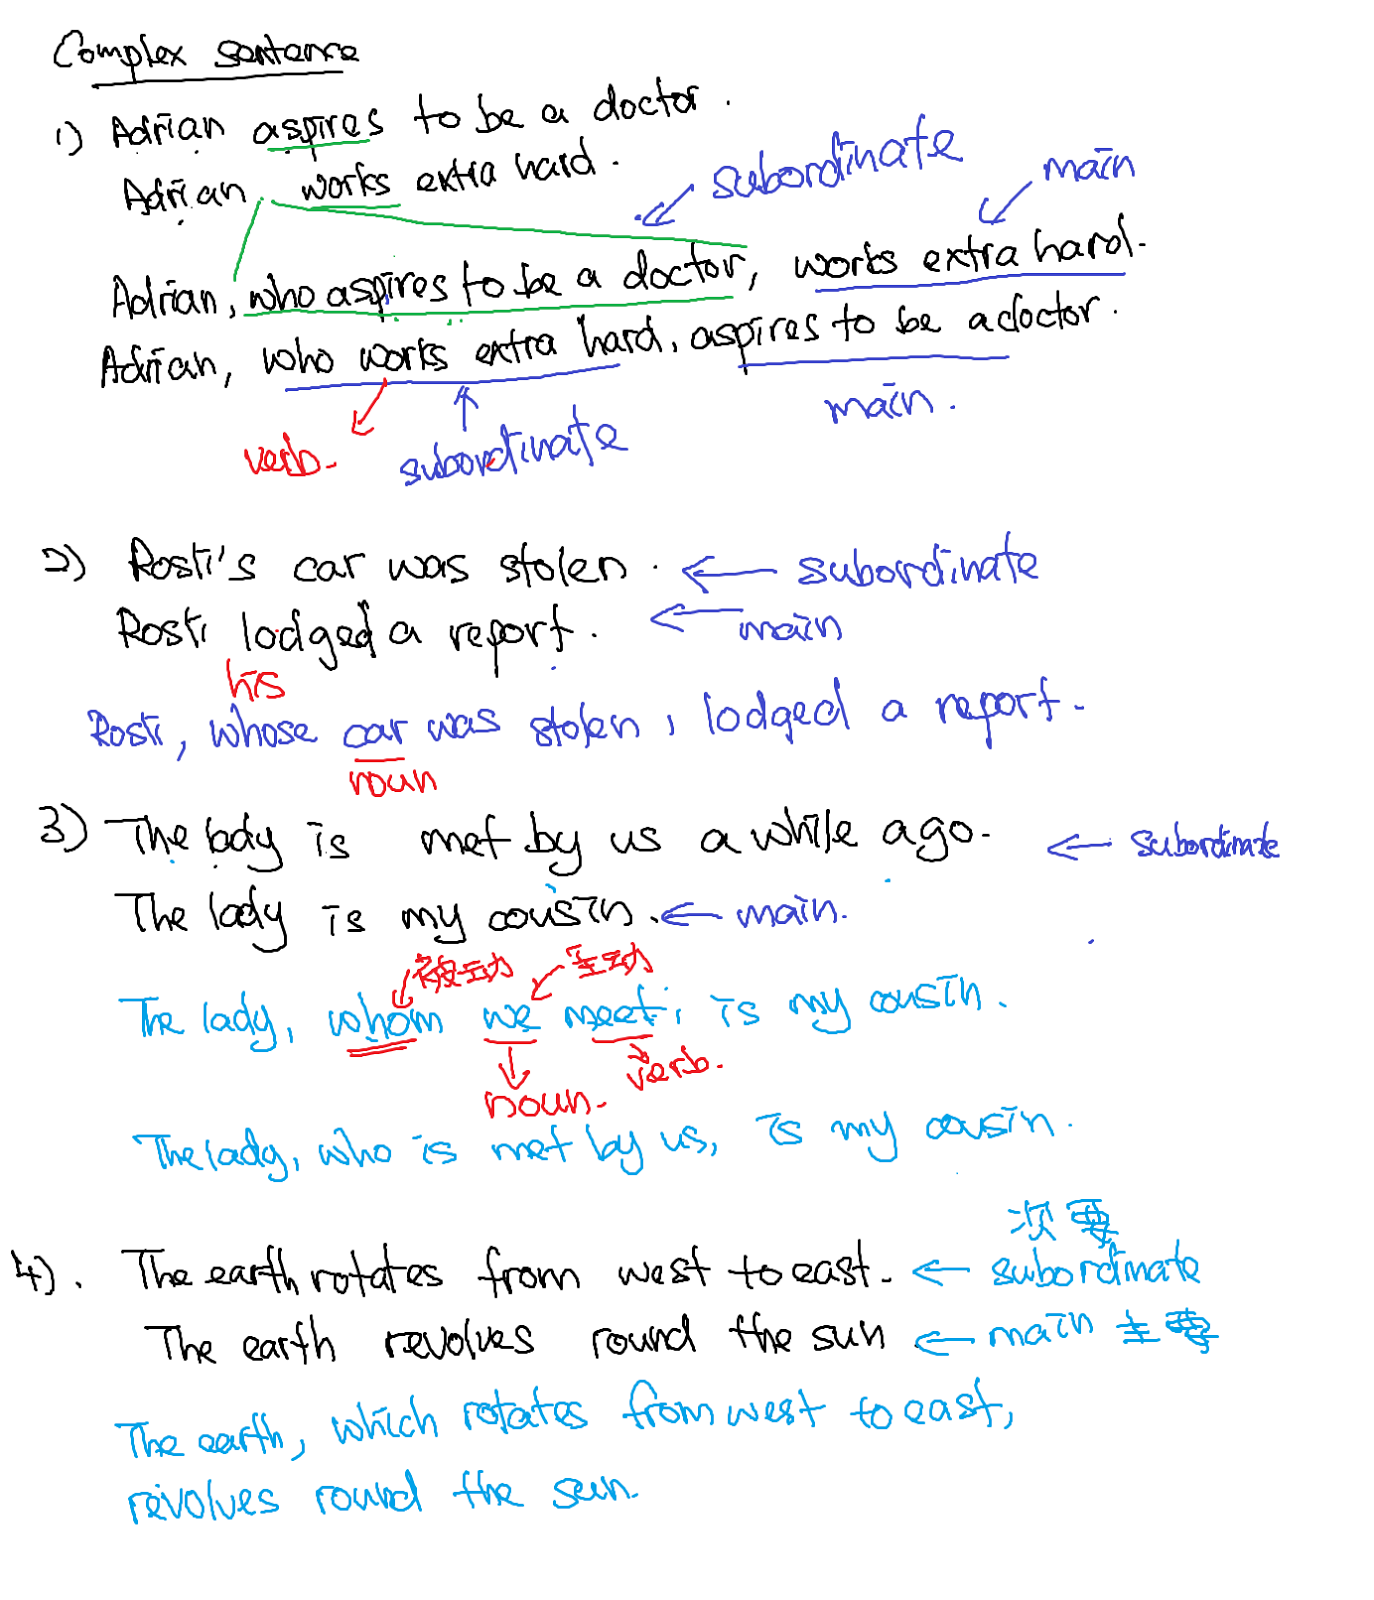 Complex sentence
1) Adrian aspires to be a doctor.
Adrian works extra hard.
subordinate
main
Adrian, who aspires to be a doctor, works extra hard.
Adrian, who works extra hard, aspires to be a doctor.
verb.
subordinate
main.
2) Rosti's car was stolen. ← subordinate
Rosti lodged a report. ← main
his
Rosti, whose car was stolen, lodged a report.
noun
3) The lady is met by us a while ago. ← subordinate
The lady is my cousin. ← main.
被动 主动
The lady, whom we meet, is my cousin.
noun. verb.
The lady, who is met by us, is my cousin.
次要
4). The earth rotates from west to east. ← subordinate
The earth revolves round the sun ← main 主要
The earth, which rotates from west to east,
revolves round the sun.